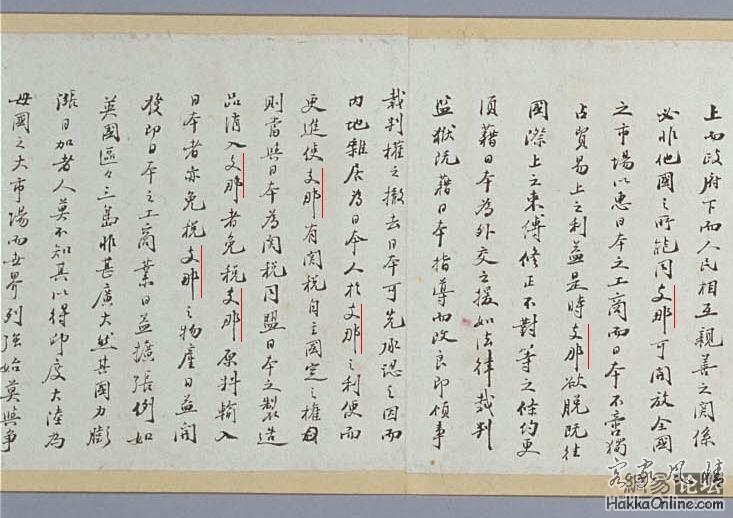 上而政府下而人民相互親善之関係
必非他國之所能同支那可開放全國
之市場以惠日本之工商而日本不啻獨
占貿易上之利益是時支那欲脱既往
國際上之束縛修正不對等之條約更
須藉日本為外交之援如法律裁判
監獄既藉日本指導而改良即領事
裁判權之撤去日本可先承認之因而
内地雜居為日本人於支那之利便而
更進使支那有関税自主國定之權
則當與日本為関税同盟日本之製造
品消入支那者免税支那原料輸入
日本者亦免税支那之物産日益開
發即日本之工商業日益擴張例如
英國區々三島非甚廣大然其國力膨
漲日加者人莫不知其以得印度大陸為
母國之大市場而世界列強始莫與爭
客家風情
網易论坛
HakkaOnline.com